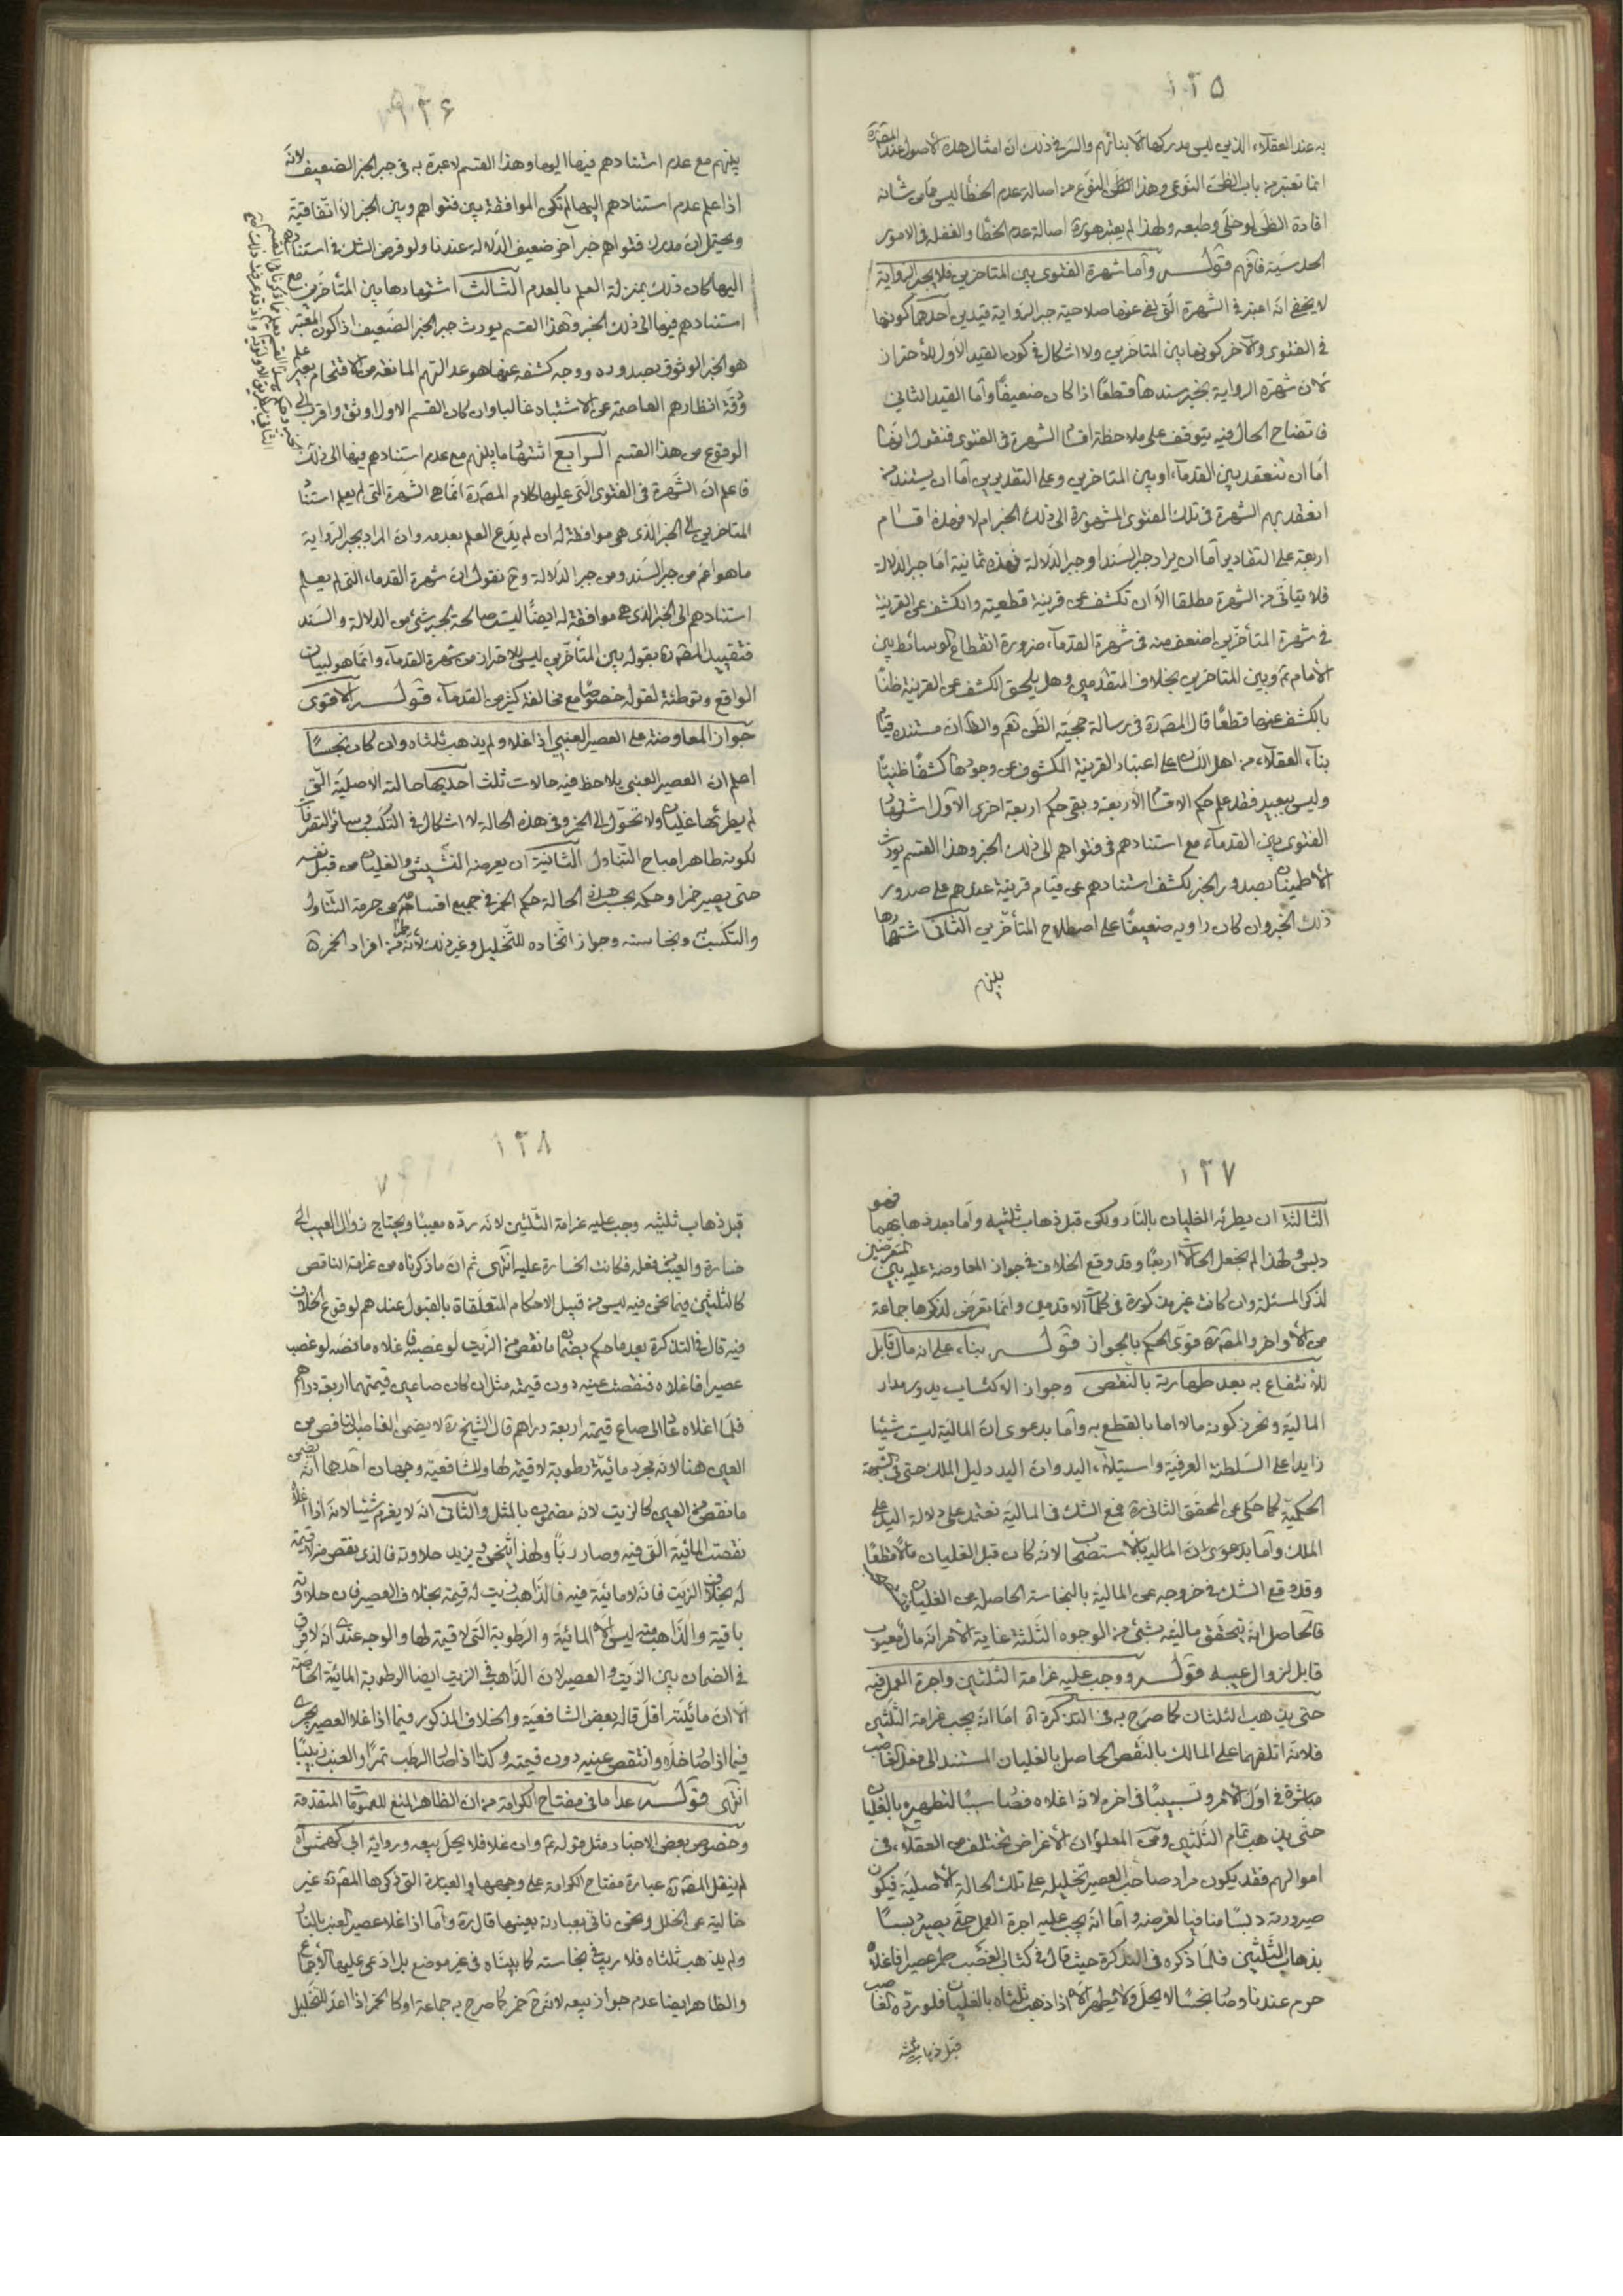 ١٢٥
به عند العقلاء الذين ليس مدركها الا بنائهم والسر في ذلك ان امثال هذه الاصول عند المصنف ره
انما تعتبر من باب الظن النوعى وهذا الظن النوعى من اصالة عدم الخطأ ليس مما من شانه
افادة الظن لو خلى وطبعه ولهذا لم يعتبر هو ره اصالة عدم الخطأ والغفلة في الامور
الحدسية فافهم قوله وأما شهرة الفتوى بين المتاخرين فلا يجبر الرواية
لا يخفى انه اعتبر في الشهرة التى نفى عنها صلاحية جبر الرواية قيدين احدهما كونها
في الفتوى والاخر كونها بين المتاخرين ولا اشكال في كون القيد الاول للأحتراز
لان شهرة الرواية يجبر سندها قطعًا اذا كان ضعيفًا وأما القيد الثاني
فاتضاح الحال فيه يتوقف على ملاحظة اقسام الشهرة في الفتوى فنقول انها
امّا ان تنعقد بين القدماء او بين المتاخرين وعلى التقديرين اما ان يستند من
انعقد بهم الشهرة في تلك الفتوى المشهورة الى ذلك الخبر ام لا فهذه اقسام
اربعة على التقادير اما ان يراد جبر السند او جبر الدلالة فهذه ثمانية اما جبر الدلالة
فلا يتاتى من الشهرة مطلقا الا ان تكشف عن قرينة قطعيته والكشف عن القرينة
في شهرة المتأخرين اضعف منه في شهرة القدماء ضرورة انقطاع الوسائط بين
الأمام ع وبين المتاخرين بخلاف المتقدمين وهل يلحق الكشف عن القرينة ظنًا
بالكشف عنها قطعًا قال المصنف ره في رسالة حجية الظن نعم والظ ان مستنده قيام
بناء العقلاء من اهل اللسان على اعتبار القرينة المكشوف عن وجودها كشفًا ظنيًا
وليس ببعيد فقد علم حكم الاقسام الأربعة وبقى حكم اربعة اخرى الأول اشتهار
الفتوى بين القدماء مع استنادهم في فتواهم الى ذلك الخبر وهذا القسم يورث
الأطمينان بصدور الخبر لكشف استنادهم عن قيام قرينة عندهم على صدور
ذلك الخبر وان كان راويه ضعيفًا على اصطلاح المتأخرين الثانى اشتهارها
بينهم
١٢٦
بينهم مع عدم استنادهم فيها اليها وهذا القسم لا عبرة به في جبر الخبر الضعيف لانه
اذا علم عدم استنادهم اليها لم تكن الموافقة بين فتواهم وبين الخبر الا اتفاقية
ويحتمل ان مدرك فتواهم خبر آخر ضعيف الدلالة عندنا ولو فرض الشك في استنادهم
اليها كان ذلك بمنزلة العلم بالعدم الثالث اشتهارها بين المتأخرين مع
استنادهم فيها الى ذلك الخبر وهذا القسم يورث جبر الخبر الضعيف اذا كون المعتبر
هو الخبر الموثوق بصدوره ووجه كشفه عنها هو عدالتهم المانعة من الاقتحام بغير علم
ودقة انظارهم العاصمة عن الاشتباه غالبا وان كان القسم الاول اوثق واقرب الى
الوقوع من هذا القسم الرابع اشتهارها بينهم مع عدم استنادهم فيها الى ذلك
فاعلم ان الشهرة في الفتوى التى عليها كلام المصنف ره انما هى الشهرة التى لم يعلم استناد
المتاخرين الى الخبر الذى هى موافقة له ان لم يدّع العلم بعدمه وان المراد بجبر الرواية
ما هو اعم من جبر السند ومن جبر الدلالة وح نقول ان شهرة القدماء التى لم يعلم
استنادهم الى الخبر الذى هى موافقة له ايضًا ليست صالحة لجبر شئ من الدلالة والسند
فتقييد المصنف ره بقوله بين المتأخرين ليس للاحتراز من شهرة القدماء وانما هو لبيان
الواقع وتوطئة لقوله خصوصًا مع مخالفة كثير من القدماء قوله الاقوى
جواز المعاوضة على العصير العنبي اذا غلا ولم يذهب ثلثاه وان كان نجسًا
اعلم ان العصير العنبي يلاحظ فيه حالات ثلث احديها حالته الاصلية التى
لم يطرئها غليان ولا تحول الى الخمر وفي هذه الحالة لا اشكال في التكسب وسائر التصرفات
لكونه طاهرا مباح التناول الثانية ان يعرضه النشيش والغليان من قبل نفسه
حتى يصير خمرا وحكمه بحسب هذه الحالة حكم الخمر في جميع اقسامه من حرمة التناول
والتكسب به ونجاسته وجواز اتخاذه للتخليل وغير ذلك لأنه من افراد الخمر ح
١٢٧
الثالثة ان يطرئه الغليان بالنار ولكن قبل ذهاب ثلثيه وأما بعد ذهابهما فهو
دبس ولهذا لم يجعل الحالات اربعًا وقد وقع الخلاف في جواز المعاوضة عليه بين المتعرضين
لذكر المسئلة وان كانت غير مذكورة في كلمات الاقدمين وانما تعرض لذكرها جماعة
من الأواخر والمصنف ره قوّى الحكم بالجواز قوله بناء على انه مال قابل
للأنتفاع به بعد طهارته بالنقص وجواز الاكتساب يدور مدار
المالية ونحرز كونه مالا اما بالقطع به وأما بدعوى ان المالية ليست شيئا
زايدا على السلطنة العرفية واستيلاء اليد وان اليد دليل الملك حتى في الشبهة
الحكمية كما حكى عن المحقق الثانى ره فمع الشك في المالية نعتمد على دلالة اليد على
الملك وأما بدعوى ان المالية بالأستصحاب لانه كان قبل الغليان مالا قطعًا
وقد وقع الشك في خروجه عن المالية بالنجاسة الحاصلة من الغليان
فالحاصل انه يتحقق ماليته بشئ من الوجوه الثلثة غاية الأمر انه مال معيوب
قابل لزوال عيبه قوله ووجب عليه غرامة الثلثين واجرة العمل فيه
حتى يذهب الثلثان كما صرح به في التذكرة اه امّا انه يجب غرامة الثلثين
فلانه اتلفهما على المالك بالنقص الحاصل بالغليان المستند الى فعل الغاصب
مباشرة في اول الأمر وتسبيبًا في اخره لانه اغلاه فصار سببًا لتطهيره بالغليان
حتى يذهب تمام الثلثين ومن المعلوم ان الأغراض تختلف من العقلاء في
اموالهم فقد يكون مراد صاحب العصير تخليله على تلك الحالة الأصلية فيكون
صيرورته دبسًا منافيا لغرضه وأما انه يجب عليه اجرة العمل حتى يصير دبسًا
بذهاب الثلثين فلما ذكره في التذكرة حيث قال في كتاب الغصب لو غصب عصيرا فاغلاه
حرم عندنا وصار نجسًا لا يحل ولا يطهر الا اذا ذهب ثلثاه بالغليان فلو ردّه الغاصب
قبل ذهاب ثلثيه
١٢٨
قبل ذهاب ثلثيه وجب عليه غرامة الثلثين لانه ردّه معيبًا ويحتاج زوال العيب الى
خسارة والعيب من فعله فكانت الخسارة عليه انتهى ثم ان ما ذكرناه من غرامة الناقص
كالثلثين فيما نحن فيه ليس من قبيل الاحكام المتعلقاة بالقبول عندهم لوقوع الخلاف
فيه قال في التذكرة بعد ما حكم بضمان ما نقص من الزيت لو غصبه فاغلاه ما نصّه لو غصب
عصيرا فاغلاه فنقصت عينه دون قيمته مثل ان كان صاعين قيمتهما اربعة دراهم
فلما اغلاه عاد الى صاع قيمته اربعة دراهم قال الشيخ ره لا يضمن الغاصب الناقص من
العين هنا لانه مجرد مائية رطوبة لا قيمة لها وللشافعية وجهان احدهما انه يضمن
ما نقص من العين كالزيت لانه مضمون بالمثل والثانى انه لا يغرم شيئا لانه اذا اغلاه
نقصت المائية التى فيه وصار ربًا ولهذا يثخن ويزيد حلاوته فالذى نقص منه لا قيمة
له بخلاف الزيت فانه لا مائية فيه فالذاهب زيت له قيمة بخلاف العصير فان حلاوته
باقية والذاهب منه ليس الا المائية والرطوبة التى لا قيمة لها والوجه عندى انه لا فرق
في الضمان بين الزيت والعصير لان الذاهب في الزيت ايضا الرطوبة المائية الخاصة
الا ان مائيته اقل قاله بعض الشافعية والخلاف المذكور فيما اذا غلا العصير يجرى
فيما اذا صار خلًا وانتقص عينه دون قيمته وكذا اذا صار الرطب تمرًا والعنب زبيبًا
انتهى قوله عدا ما في مفتاح الكرامة من ان الظاهر المنع للعمومات المتقدمة
وخصوص بعض الاخبار مثل قوله ع وان غلا فلا يحل بيعه ورواية ابي كهمش اه
لم ينقل المصنف ره عبارة مفتاح الكرامة على وجهها والعبارة التى ذكرها المصنف ره غير
خالية عن الخلل ونحن ناتى بعبارته بعينها قال ره وأما اذا غلا عصير العنب بالنار
ولم يذهب ثلثاه فلا ريب في نجاسته كما بيناه في غير موضع بل ادعى عليها الأجماع
والظاهر ايضا عدم جواز بيعه لانه ح خمر كما صرح به جماعة او كالخمر اذا اعدّ للتخليل